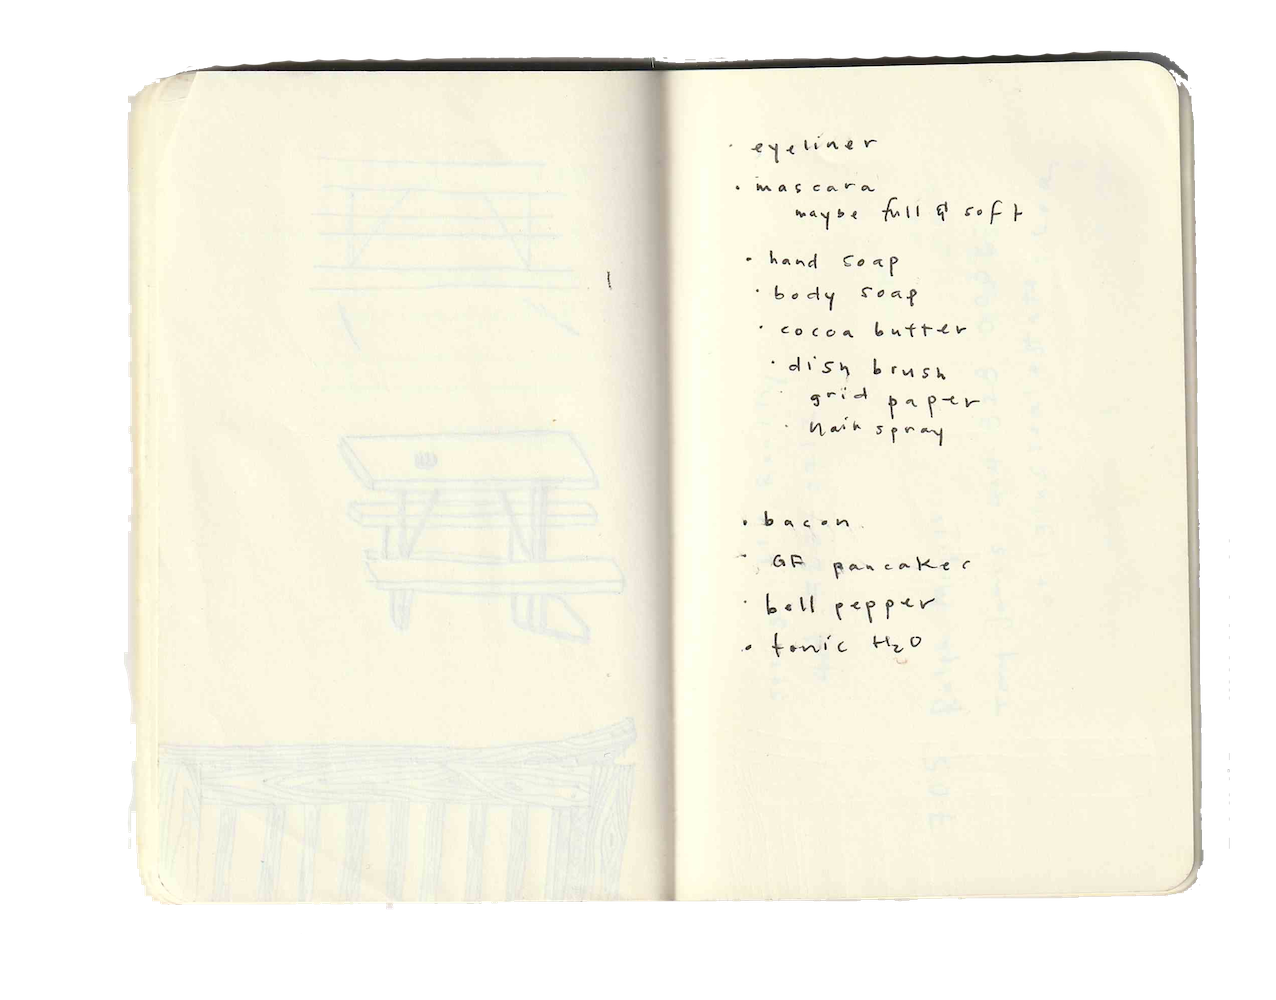 · eyeliner
· mascara
maybe full & soft
· hand soap
· body soap
· cocoa butter
· dish brush
· grid paper
· hair spray
· bacon
· GF pancakes
· bell pepper
· tonic H2O